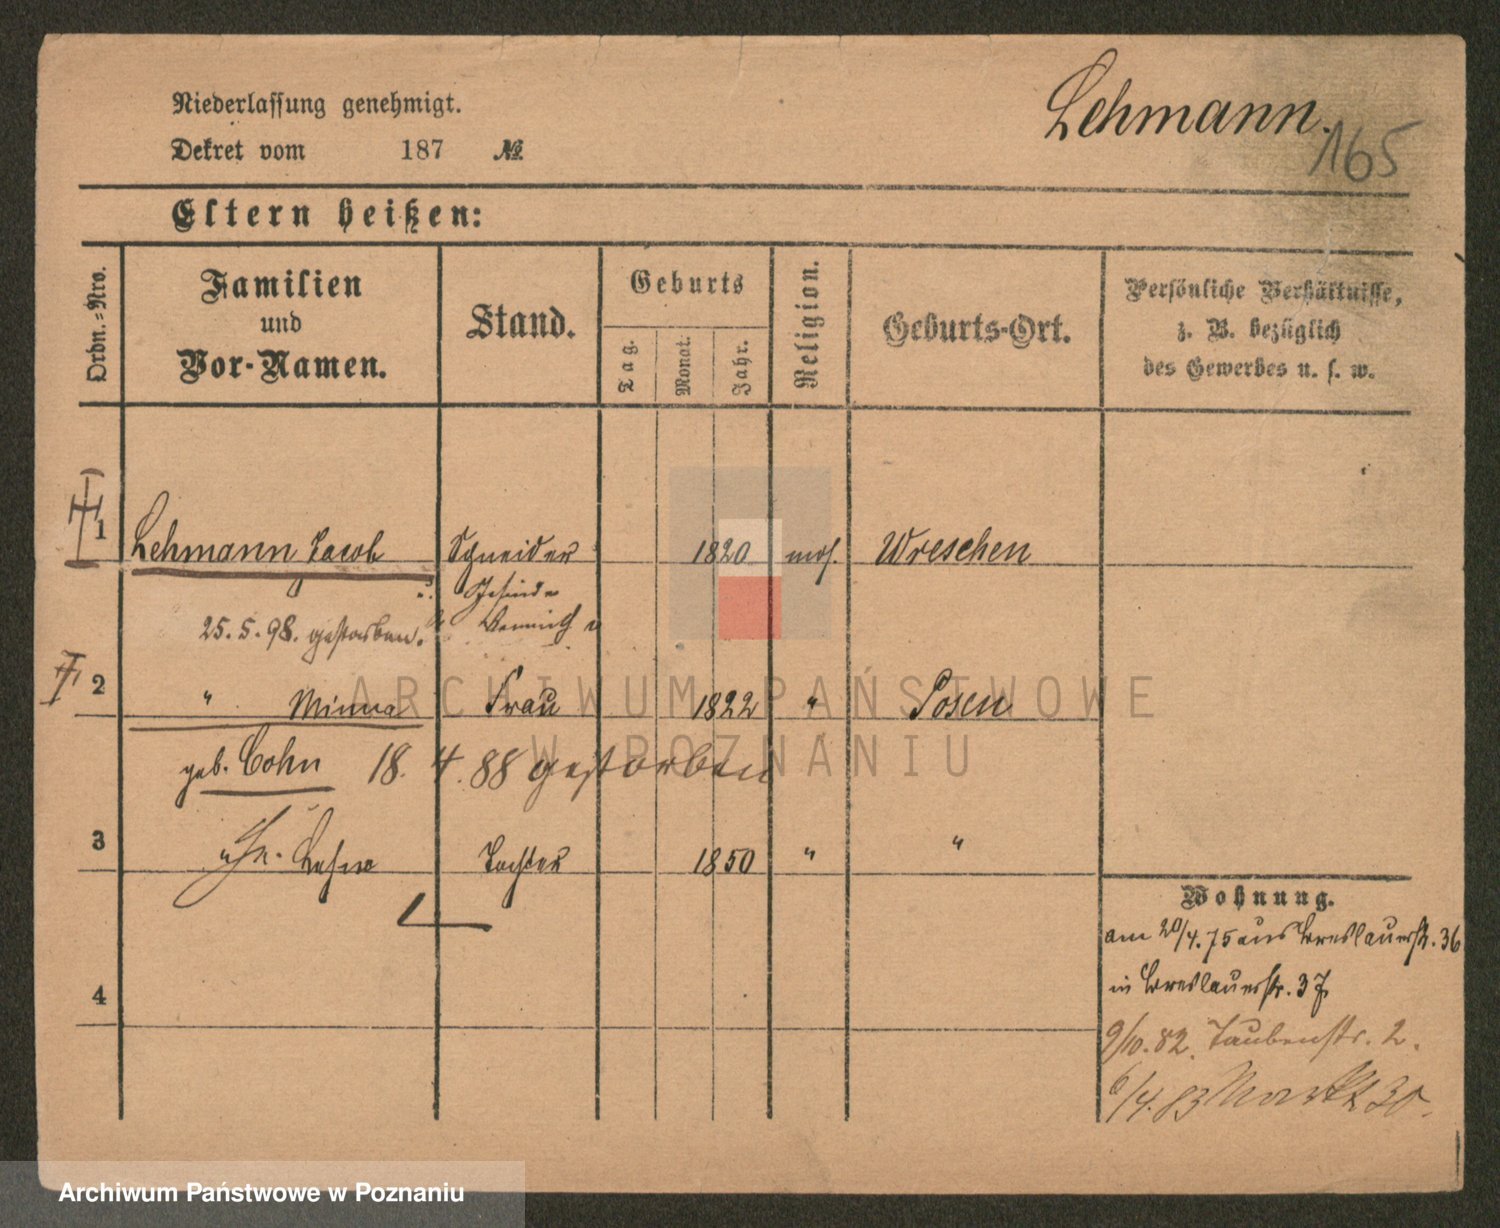 Niederlassung genehmigt.
Dekret vom 187 №
Lehmann.
165
Eltern heißen:
Ordn.=Nro.
Familien und Vor-Namen.
Stand.
Geburts
Tag.
Monat.
Jahr.
Religion.
Geburts-Ort.
Persönliche Verhältnisse,
z. B. bezüglich
des Gewerbes u. s. w.
1 Lehmann Jacob Schneider 1820 mos. Wreschen
u. Gesinde
25. 5. 98. gestorben.
2 " Minna Frau 1822 " Posen
geb. Cohn 18. 4. 88 gestorben
3 " Tochter 1850 " "
4
Wohnung.
am 20/4. 75 aus Breslauerstr. 36
in Breslauerstr. 37
9/10. 82. Taubenstr. 2.
6/4. 83 Markt 30.
ARCHIWUM PAŃSTWOWE
W POZNANIU
Archiwum Państwowe w Poznaniu